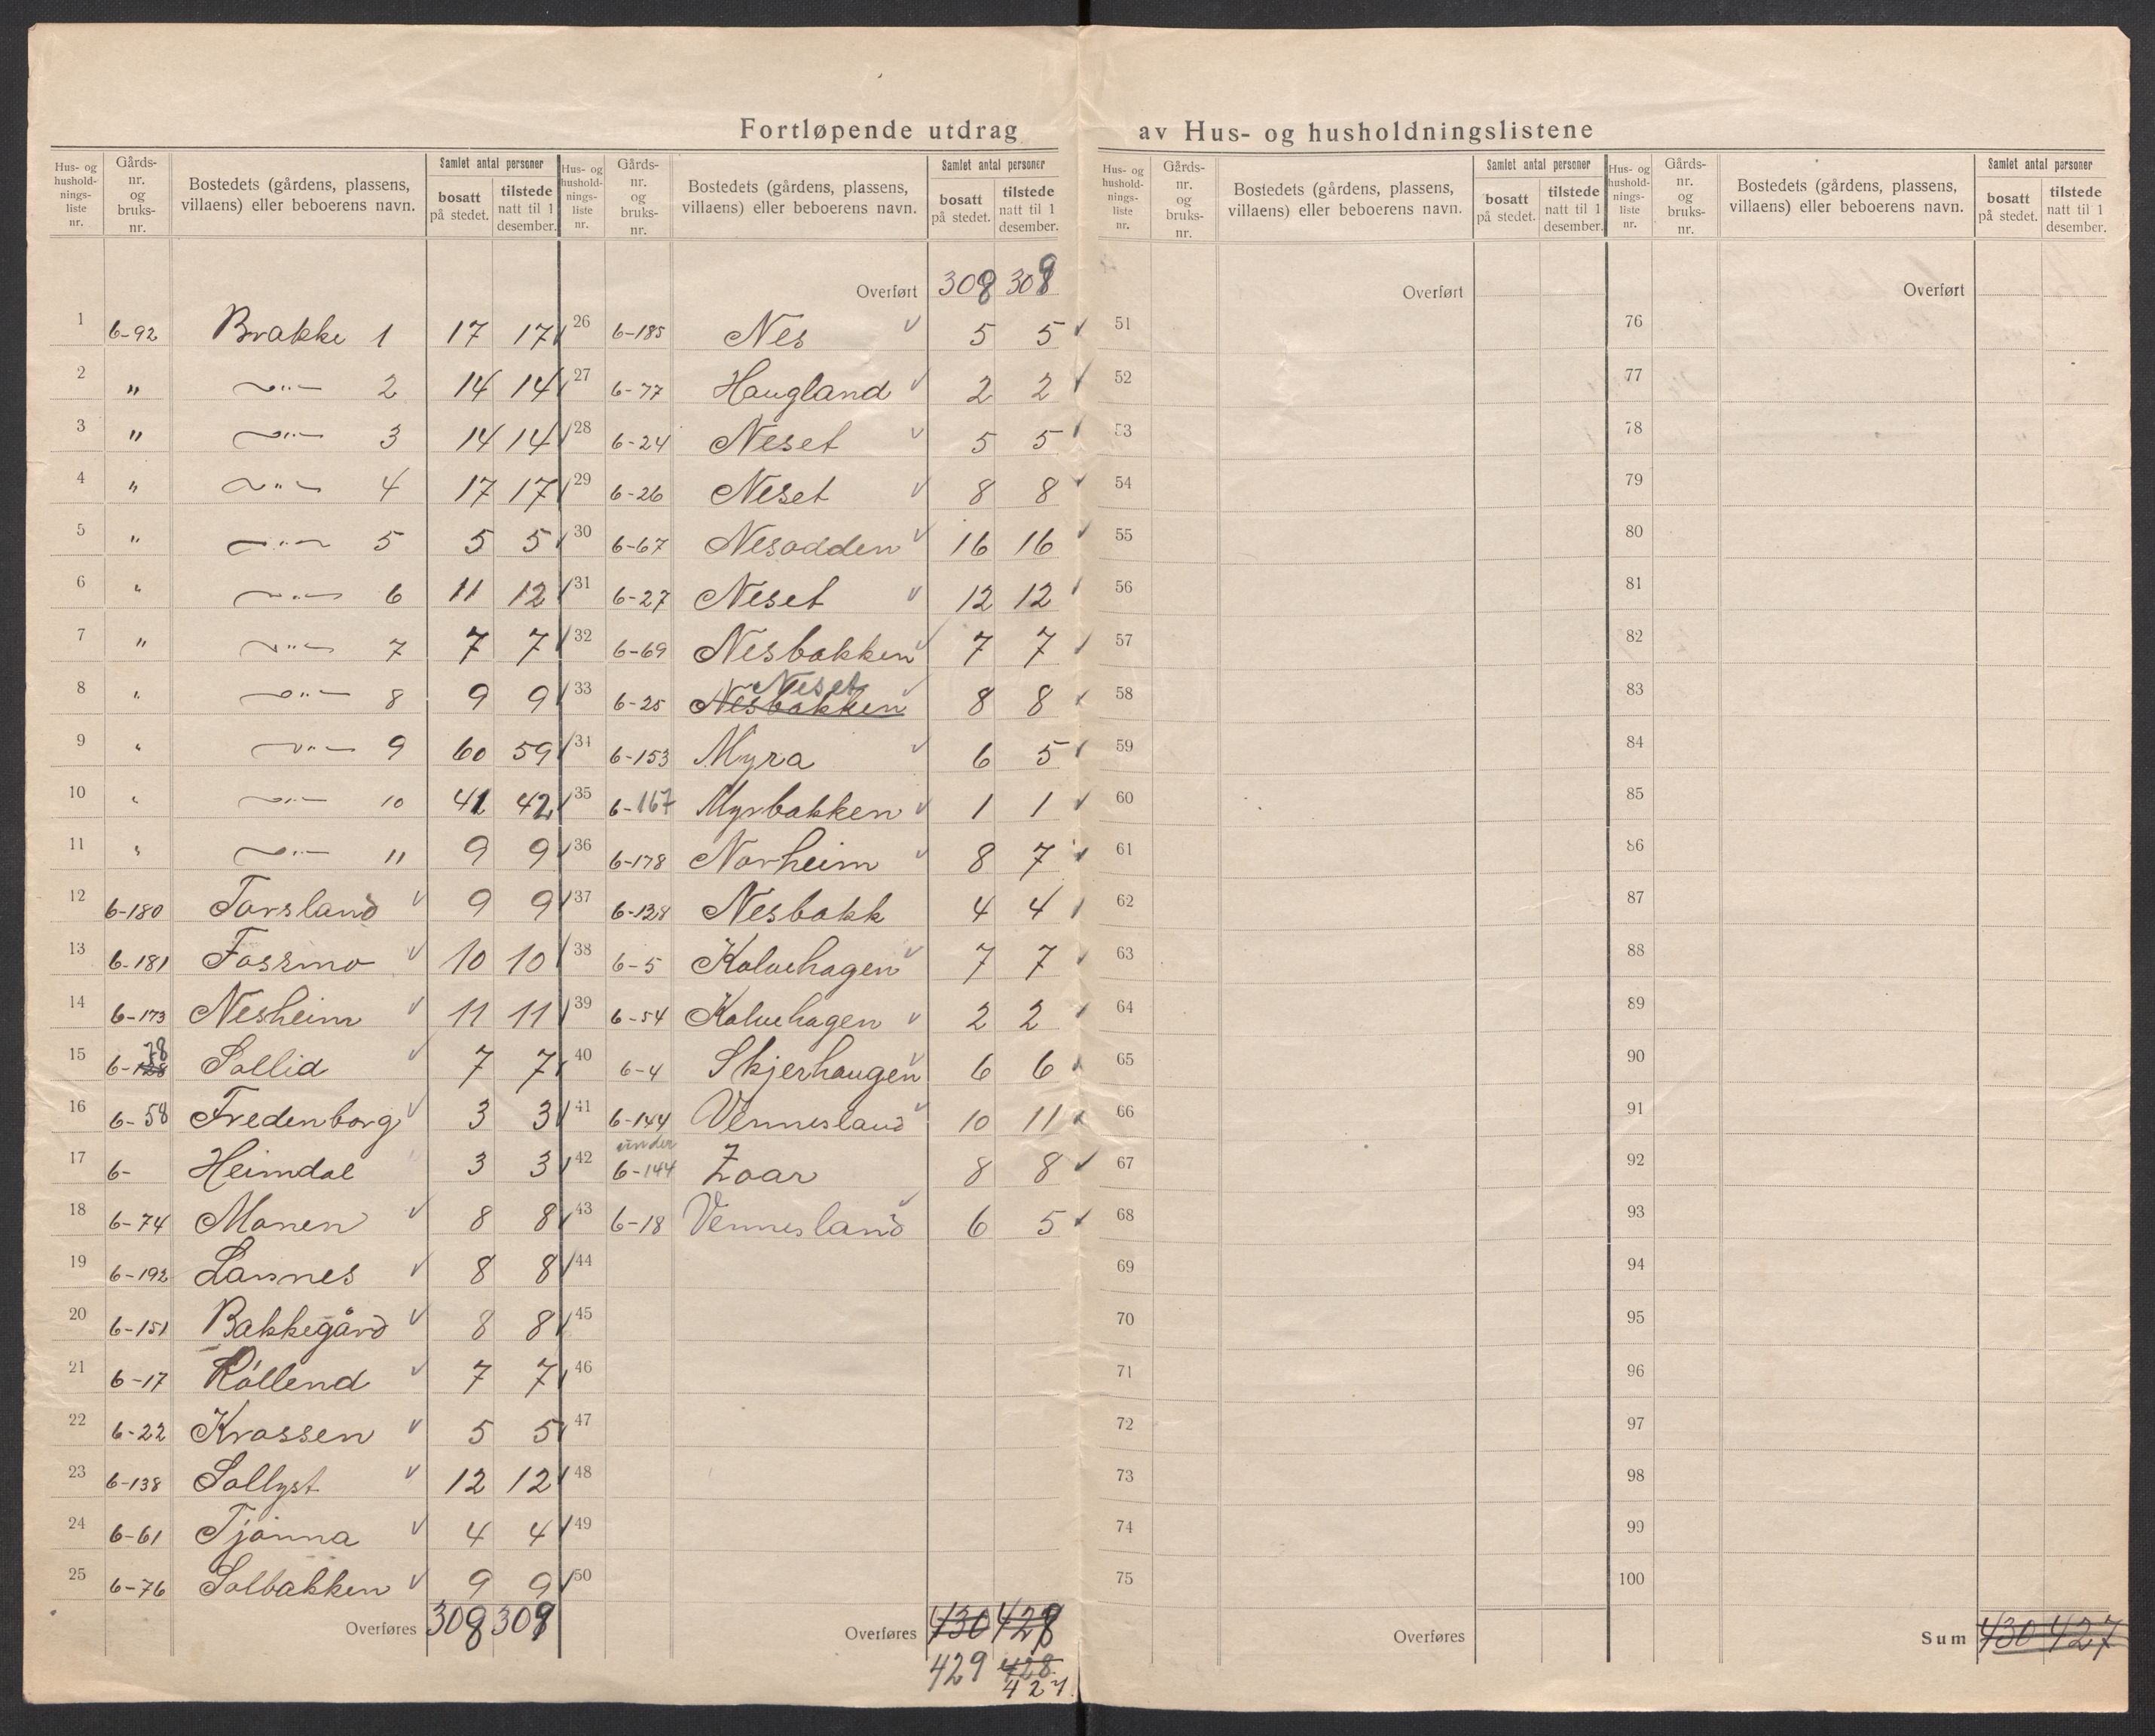 Fortløpende utdrag av Hus- og husholdningslistene
Hus- og hushold- nings- liste nr. | Gårds- nr. og bruks- nr. | Bostedets (gårdens, plassens, villaens) eller beboerens navn. | Samlet antal personer | bosatt på stedet. | tilstede natt til 1 desember.
1 6-92 Brakke 1 17 17
2 " —"— 2 14 14
3 " —"— 3 14 14
4 " —"— 4 17 17
5 " —"— 5 5 5
6 " —"— 6 11 12
7 " —"— 7 7 7
8 " —"— 8 9 9
9 " —"— 9 60 59
10 " —"— 10 41 42
11 " —"— 11 9 9
12 6-180 Torsland 9 9
13 6-181 Fossmo 10 10
14 6-173 Nesheim 11 11
15 6-128 78 Sollid 7 7
16 6-58 Fredenborg 3 3
17 6- Heimdal 3 3
18 6-74 Monen 8 8
19 6-192 Lannes 8 8
20 6-151 Bakkegård 8 8
21 6-17 Róllend 7 7
22 6-22 Krossen 5 5
23 6-138 Sollyst 12 12
24 6-61 Tjønna 4 4
25 6-76 Solbakken 9 9
Overføres 308 309
Hus- og hushold- nings- liste nr. | Gårds- nr. og bruks- nr. | Bostedets (gårdens, plassens, villaens) eller beboerens navn. | Samlet antal personer | bosatt på stedet. | tilstede natt til 1 desember.
Overført 308 309
26 6-185 Nes 5 5
27 6-77 Haugland 2 2
28 6-24 Neset 5 5
29 6-26 Neset 8 8
30 6-67 Nesodden 16 16
31 6-27 Neset 12 12
32 6-69 Nesbakken 7 7
33 6-25 Nesbakken Neset 8 8
34 6-153 Myra 6 5
35 6-167 Myrbakken 1 1
36 6-178 Norheim 8 7
37 6-128 Nesbakk 4 4
38 6-5 Kaluehagen 7 7
39 6-54 Kaluehagen 2 2
40 6-4 Skjerhaugen 6 6
41 6-144 Vennesland 10 11
42 under 6-144 Zoar 8 8
43 6-18 Vennesland 6 5
44
45
46
47
48
49
50
Overføres 430 428
429 428
427
Hus- og hushold- nings- liste nr. | Gårds- nr. og bruks- nr. | Bostedets (gårdens, plassens, villaens) eller beboerens navn. | Samlet antal personer | bosatt på stedet. | tilstede natt til 1 desember.
Overført
51
52
53
54
55
56
57
58
59
60
61
62
63
64
65
66
67
68
69
70
71
72
73
74
75
Overføres
Hus- og hushold- nings- liste nr. | Gårds- nr. og bruks- nr. | Bostedets (gårdens, plassens, villaens) eller beboerens navn. | Samlet antal personer | bosatt på stedet. | tilstede natt til 1 desember.
Overført
76
77
78
79
80
81
82
83
84
85
86
87
88
89
90
91
92
93
94
95
96
97
98
99
100
Sum 430 427